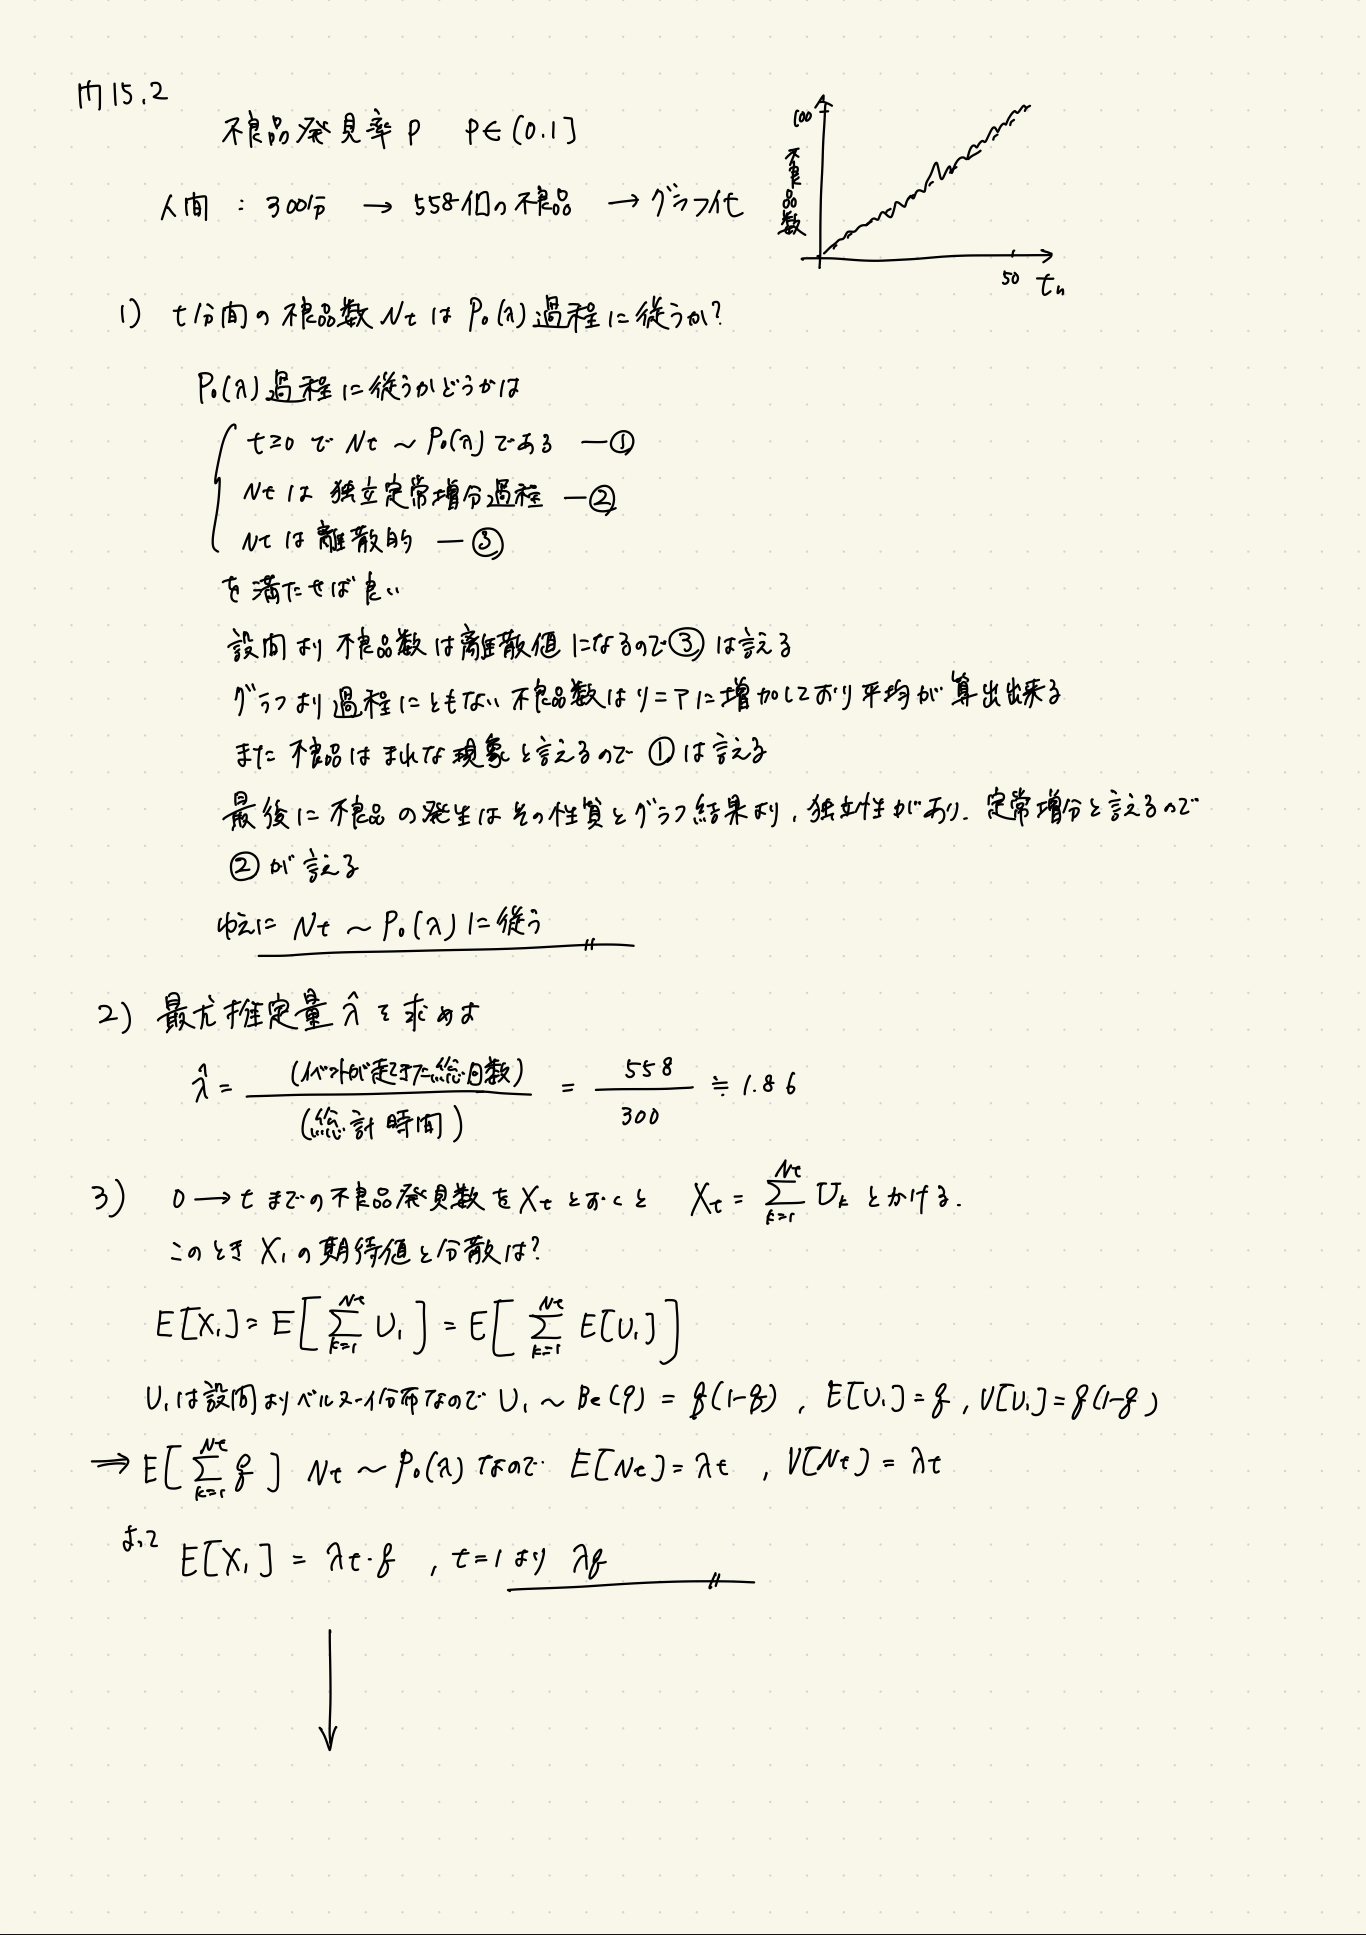 問15.2
不良品発見率 P P∈(0.1]
人間 : 300分 → 558個の不良品 → グラフ化
100
不良品数
50 tn
1) t分間の不良品数 Nt は Po(λ)過程に従うか?
Po(λ)過程に従うかどうかは
t≥0 で Nt ~ Po(λ) である —①
Nt は 独立定常増分過程 —②
Nt は 離散的 —③
を満たせば良い
設問より不良品数は離散値になるので③は言える
グラフより過程にともない不良品数はリニアに増加しており平均が算出出来る
また不良品はまれな現象と言えるので①は言える
最後に不良品の発生はその性質とグラフ結果より、独立性があり、定常増分と言えるので
②が言える
ゆえに Nt ~ Po(λ)に従う
2) 最尤推定量 λ̂ を求めよ
λ̂ = (イベントが起きた総回数) / (総計時間) = 558 / 300 ≒ 1.86
3) 0 → t までの不良品発見数を Xt とおくと Xt = Σ_{k=1}^{Nt} Uk とかける.
このとき X1 の期待値と分散は?
E[X1] = E[Σ_{k=1}^{Nt} U1] = E[Σ_{k=1}^{Nt} E[U1]]
U1 は設問よりベルヌーイ分布なので U1 ~ Be(q) = q(1-q) , E[U1] = q , V[U1] = q(1-q)
⇒ E[Σ_{k=1}^{Nt} q] Nt ~ Po(λ) なので E[Nt] = λt , V[Nt] = λt
よって E[X1] = λt・q , t=1 より λq